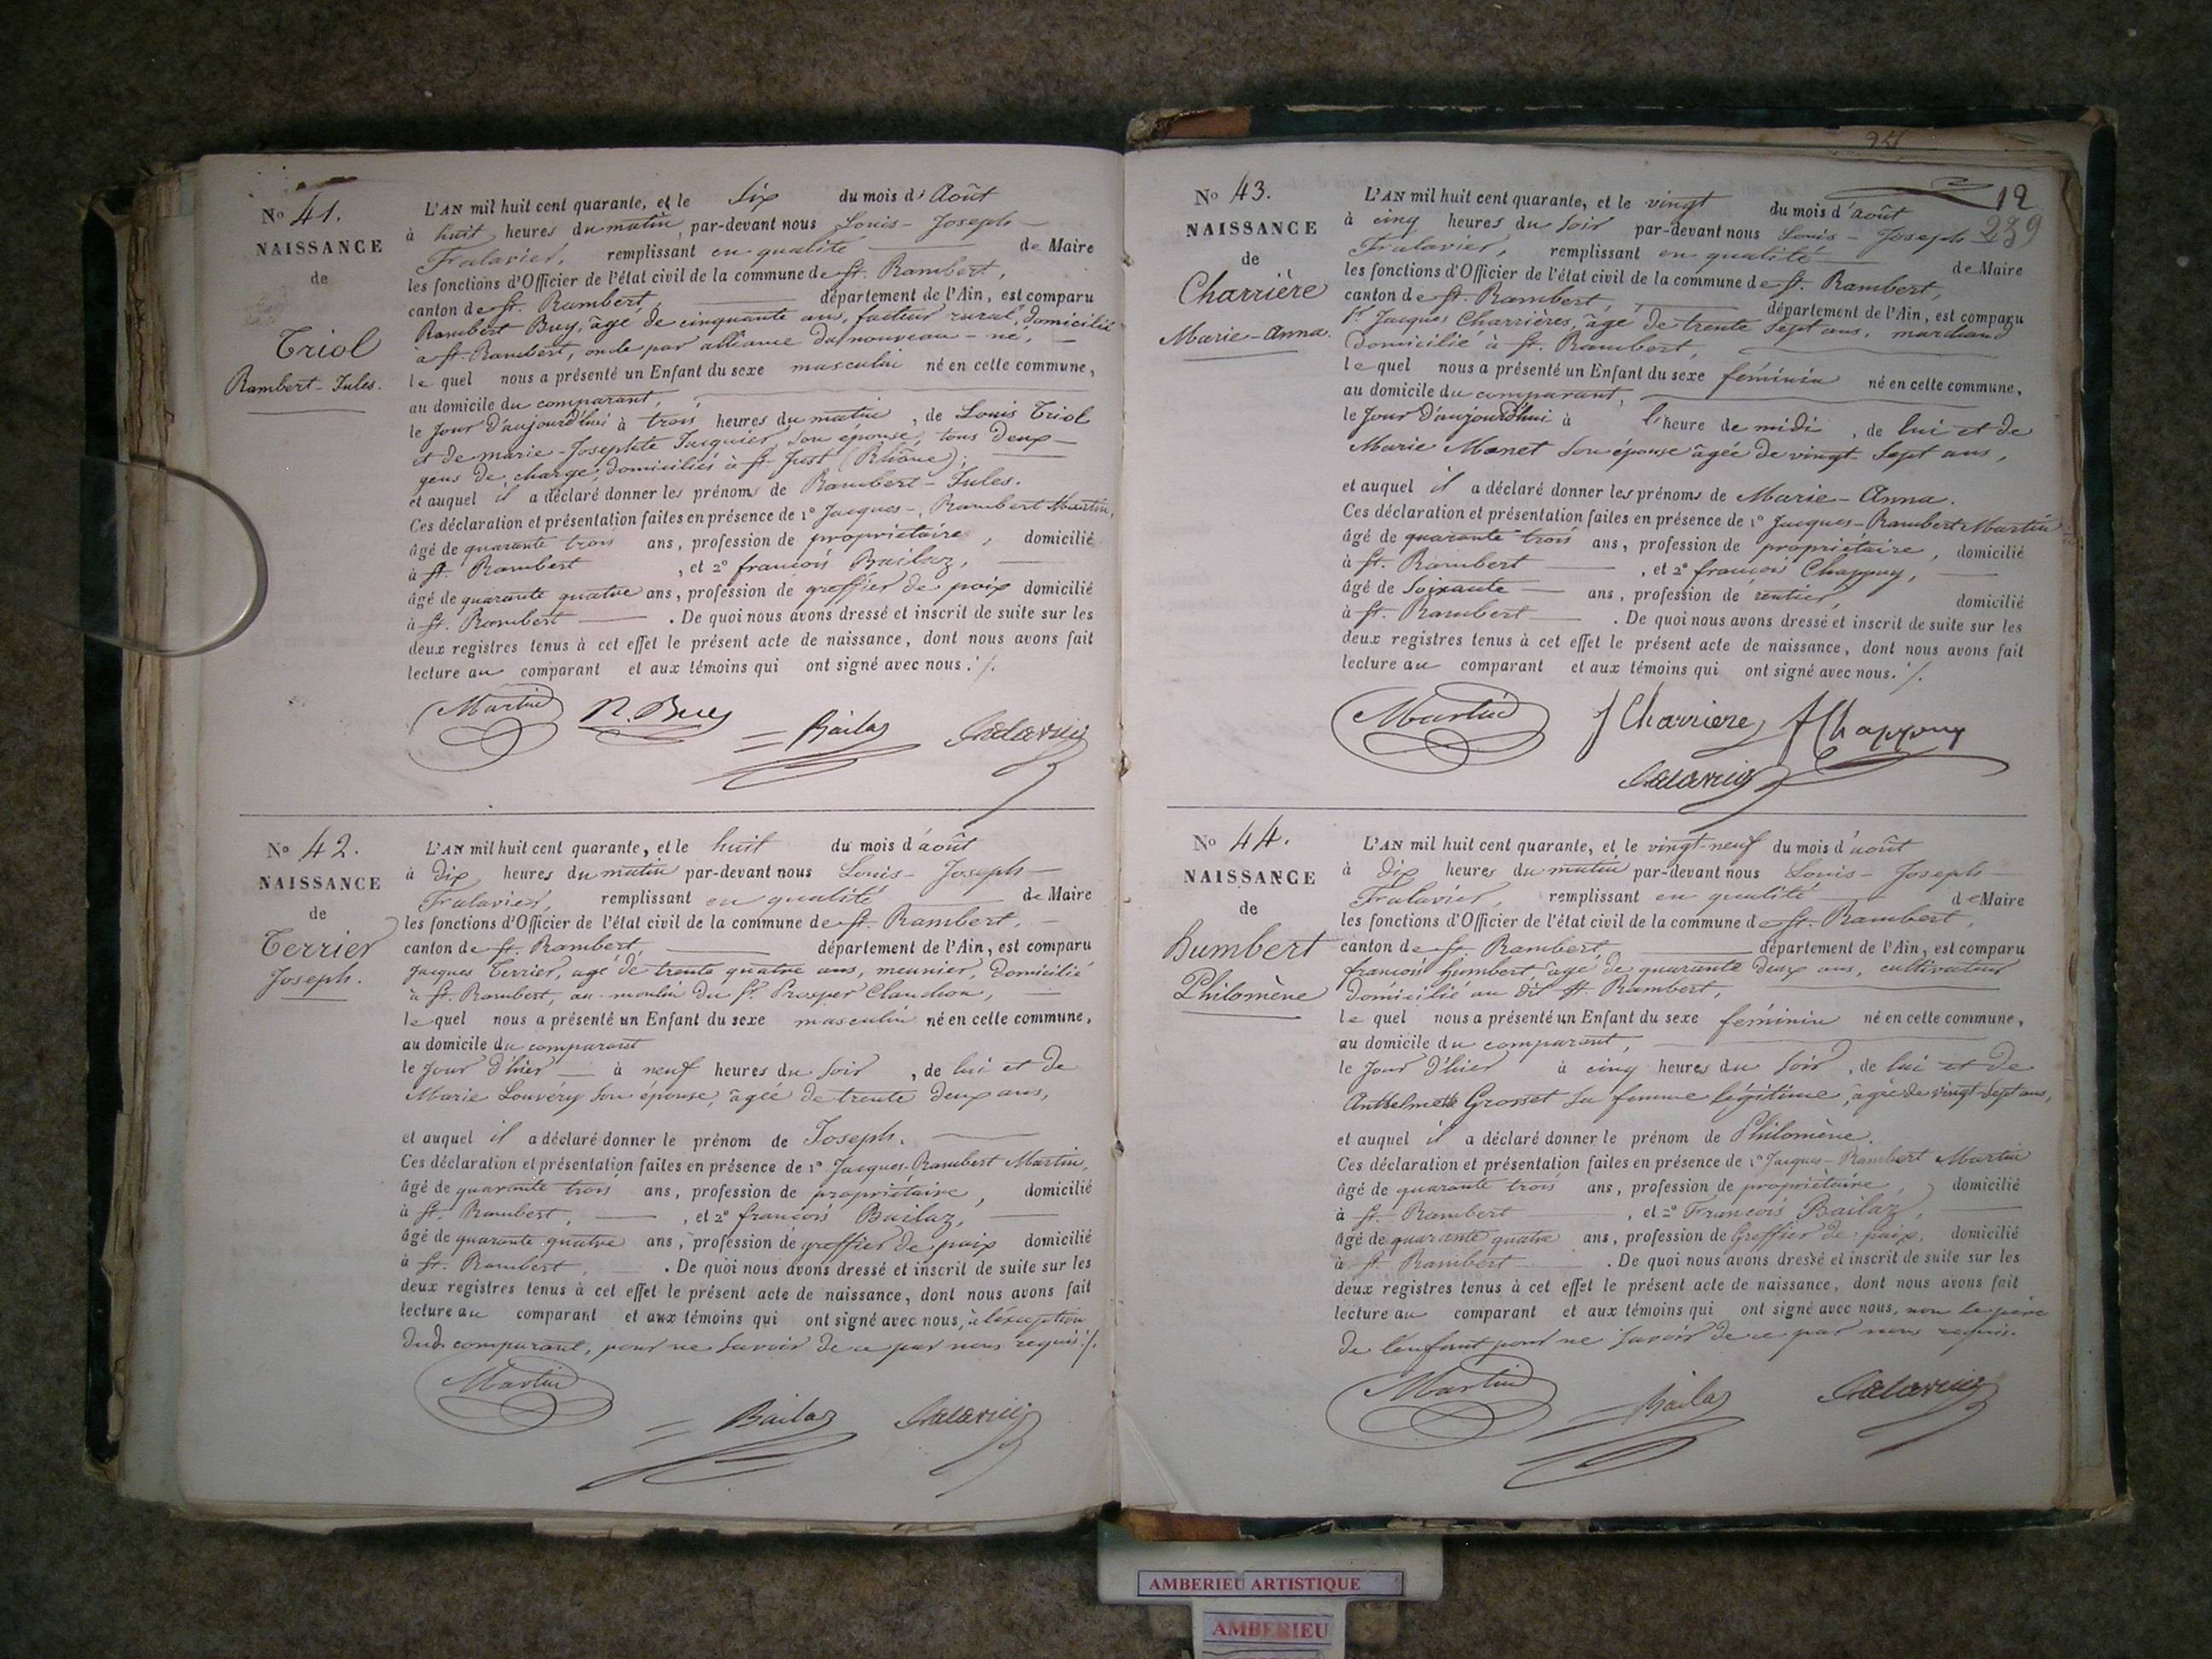 No 41.
NAISSANCE
de
Triol
Rambert-Jules.
L'AN mil huit cent quarante, et le Six du mois d'Août
à huit heures du matin par-devant nous Louis-Joseph
remplissant en qualité de Maire
les fonctions d'Officier de l'état civil de la commune de St. Rambert,
canton de St. Rambert, département de l'Ain, est comparu
Rambert Buy, âgé de cinquante ans, facteur rural, domicilié
à St. Rambert, oncle par alliance du nouveau-né,
lequel nous a présenté un Enfant du sexe masculin né en cette commune,
au domicile du comparant,
le jour d'aujourd'hui à trois heures du matin, de Louis Triol
et de marie-Josephte Jacquier, son épouse, tous deux
gens de charge, domiciliés à St. Just (Rhône);
et auquel il a déclaré donner les prénoms de Rambert-Jules.
Ces déclaration et présentation faites en présence de 1° Jacques-Rambert Martin,
âgé de quarante trois ans, profession de propriétaire, domicilié
à St. Rambert, et 2° françois Bailaz,
âgé de quarante quatre ans, profession de greffier de paix domicilié
à St. Rambert. De quoi nous avons dressé et inscrit de suite sur les
deux registres tenus à cet effet le présent acte de naissance, dont nous avons fait
lecture au comparant et aux témoins qui ont signé avec nous. /.
Martin R. Buy Bailaz
No 42.
NAISSANCE
de
Terrier
Joseph.
L'AN mil huit cent quarante, et le huit du mois d'août
à dix heures du matin par-devant nous Louis-Joseph
remplissant en qualité de Maire
les fonctions d'Officier de l'état civil de la commune de St. Rambert,
canton de St. Rambert, département de l'Ain, est comparu
Jacques Terrier, âgé de trente quatre ans, meunier, domicilié
à St. Rambert, au moulin du Sr. Prosper Claudion,
lequel nous a présenté un Enfant du sexe masculin né en cette commune,
au domicile du comparant
le jour d'hier à neuf heures du soir, de lui et de
Marie Louvéry son épouse, âgée de trente deux ans,
et auquel il a déclaré donner le prénom de Joseph.
Ces déclaration et présentation faites en présence de 1° Jacques-Rambert Martin,
âgé de quarante trois ans, profession de propriétaire, domicilié
à St. Rambert, et 2° françois Bailaz,
âgé de quarante quatre ans, profession de greffier de paix domicilié
à St. Rambert, . De quoi nous avons dressé et inscrit de suite sur les
deux registres tenus à cet effet le présent acte de naissance, dont nous avons fait
lecture au comparant et aux témoins qui ont signé avec nous, à l'exception
dud. comparant, pour ne savoir de ce par nous requis /.
Martin Bailaz
12
239
No 43.
NAISSANCE
de
Charrière
Marie-Anna.
L'AN mil huit cent quarante, et le vingt du mois d'août
à cinq heures du soir par-devant nous Louis-Joseph
remplissant en qualité de Maire
les fonctions d'Officier de l'état civil de la commune de St. Rambert,
canton de St. Rambert, département de l'Ain, est comparu
Sr. Jacques Charrières, âgé de trente sept ans, marchand
domicilié à St. Rambert,
lequel nous a présenté un Enfant du sexe féminin né en cette commune,
au domicile du comparant,
le jour d'aujourd'hui à l'heure de midi, de lui et de
Marie Monet son épouse âgée de vingt-sept ans,
et auquel il a déclaré donner les prénoms de Marie-Anna.
Ces déclaration et présentation faites en présence de 1° Jacques-Rambert Martin
âgé de quarante trois ans, profession de propriétaire, domicilié
à St. Rambert, et 2° françois Chappuy,
âgé de soixante ans, profession de rentier, domicilié
à St. Rambert. De quoi nous avons dressé et inscrit de suite sur les
deux registres tenus à cet effet le présent acte de naissance, dont nous avons fait
lecture au comparant et aux témoins qui ont signé avec nous. /.
Martin J Charriere f Chappuy
No 44.
NAISSANCE
de
Humbert
Philomène
L'AN mil huit cent quarante, et le vingt-neuf du mois d'août
à dix heures du matin par-devant nous Louis-Joseph
remplissant en qualité de Maire
les fonctions d'Officier de l'état civil de la commune de St. Rambert,
canton de St. Rambert, département de l'Ain, est comparu
françois humbert âgé de quarante deux ans, cultivateur
domicilié au dit St. Rambert,
lequel nous a présenté un Enfant du sexe féminin né en cette commune,
au domicile du comparant,
le jour d'hier à cinq heures du soir, de lui et de
Grosset sa femme légitime, âgée de vingt-sept ans,
et auquel il a déclaré donner le prénom de Philomène.
Ces déclaration et présentation faites en présence de 1° Jacques-Rambert Martin
âgé de quarante trois ans, profession de propriétaire, domicilié
à St. Rambert, et 2° François Bailaz,
âgé de quarante quatre ans, profession de Greffier de paix, domicilié
à St. Rambert. De quoi nous avons dressé et inscrit de suite sur les
deux registres tenus à cet effet le présent acte de naissance, dont nous avons fait
lecture au comparant et aux témoins qui ont signé avec nous, non le père
de l'enfant pour ne savoir de ce par nous requis.
Martin Bailaz
AMBERIEU ARTISTIQUE
AMBERIEU